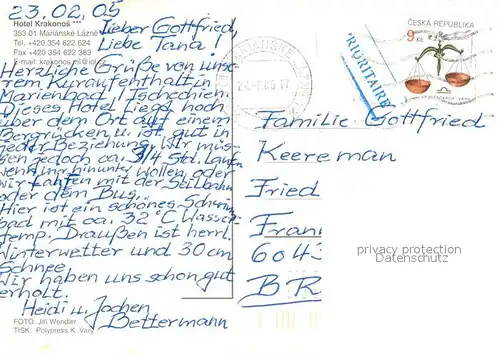 23.02.05
Hotel Krakonoš ***
353 01 Mariánské Lázně
Tel. +420 354 622 624
Fax +420 354 622 383
E-mail: krakonos.ml@iol.cz
Lieber Gottfried,
Liebe Jana!
Herzliche Grüße von uns-
rem Kuraufenthalt in
Marienbad / Tschechien.
Dieses Hotel liegt hoch
über dem Ort auf einem
Bergrücken u. ist gut in
jeder Beziehung. Wir müs-
sen jedoch ca. 3/4 Std. laufen
wenn wir hinunter wollen oder
wir fahren mit der Seilbahn
oder dem Bus.
Hier ist ein schönes Schwimm-
bad mit ca. 32°C Wasser-
temp. Draußen ist herrl.
Winterwetter und 30 cm
Schnee.
Wir haben uns schon gut
erholt.
Heidi u. Jochen
Bettermann
FOTO: Jiří Wendler
TISK: Polypress K. Vary
PRIORITAIRE
ČESKÁ REPUBLIKA
9 Kč
Familie Gottfried
Keereman
Fried
Fran
6043
BR
privacy protection
Datenschutz